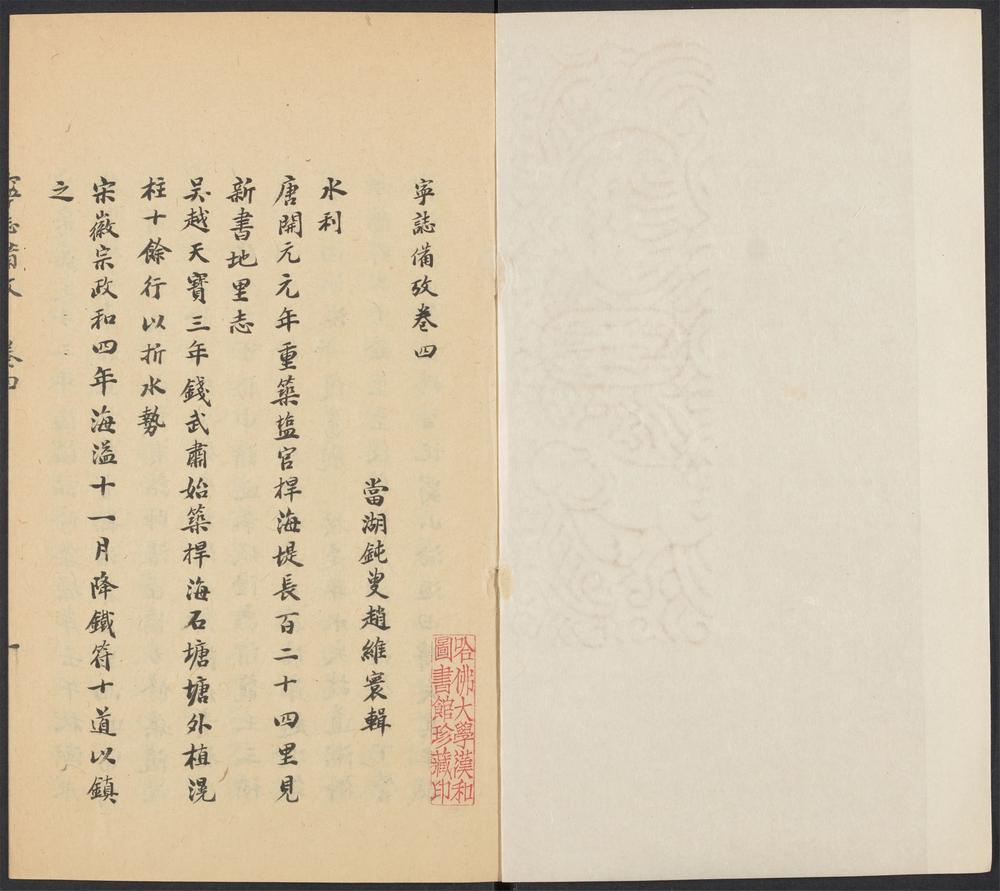 寧誌備攷卷四
當湖鈍叟趙維寰輯
水利
唐開元元年重築盐官捍海堤長百二十四里見
新書地里志
吴越天寳三年錢武肅始築捍海石塘塘外植滉
柱十餘行以折水勢
宋徽宗政和四年海溢十一月降鐵符十道以鎮
之
寧誌備攷 卷四 一
哈佛大學漢和
圖書館珍藏印